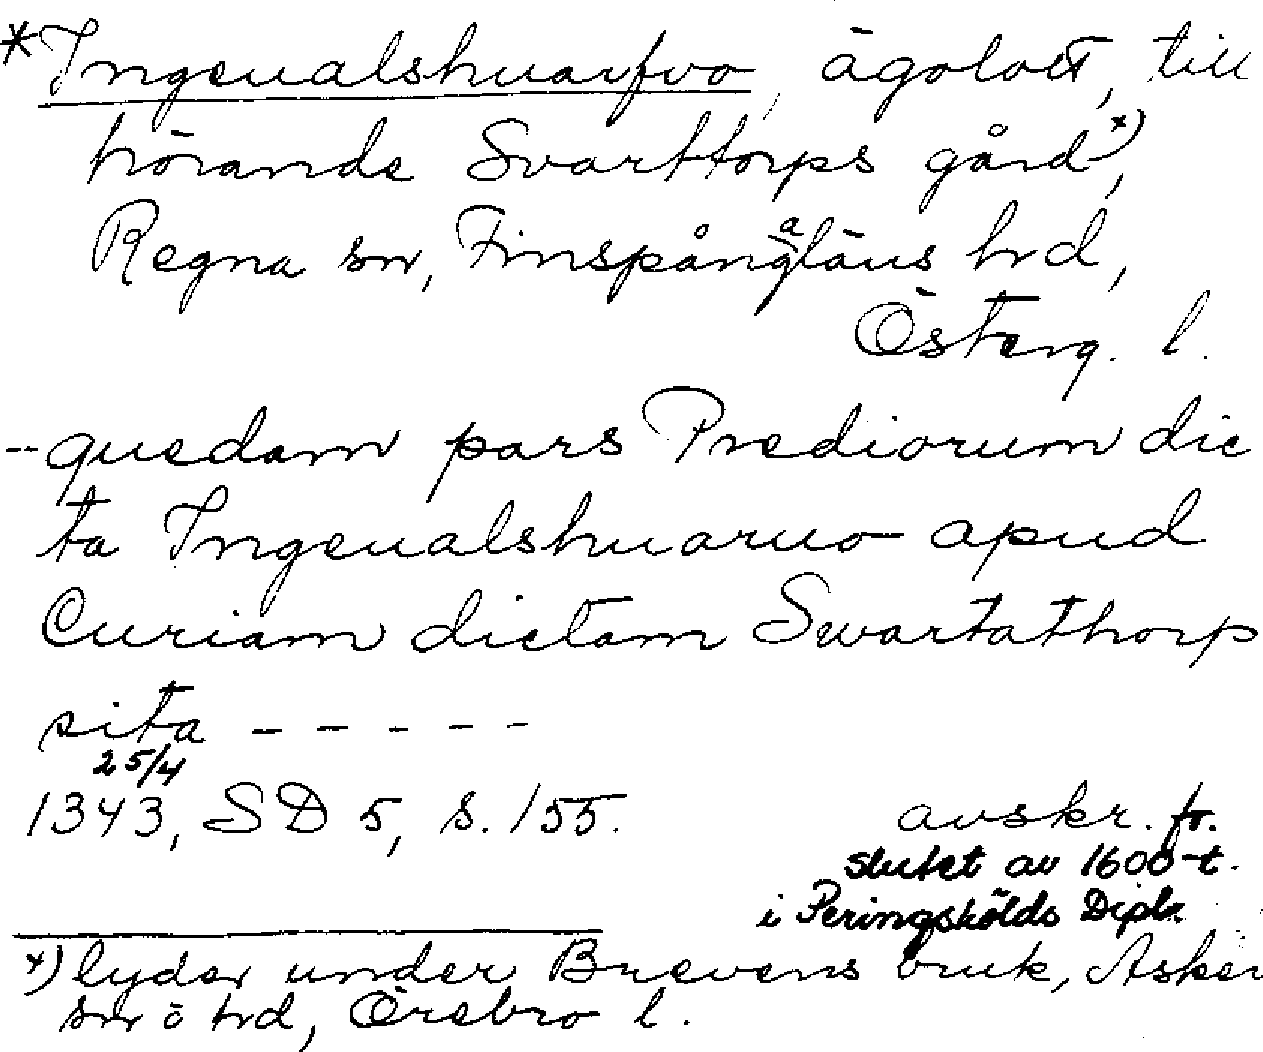 *Ingeualshuarfvo, ägolott, till
hörande Svarttorps gård*),
Regna sn, Finspångaläns hrd,
Österg. l.
--quedam pars Prediorum dic
ta Ingeualshuaruo apud
Curiam dictam Swartathorp
sita - - - - -
25/4
1343, SD 5, s. 155.
avskr. fr.
slutet av 1600-t.
i Peringskölds Dipl.
*) lyder under Brevens bruk, Asker
sn o hrd, Örebro l.